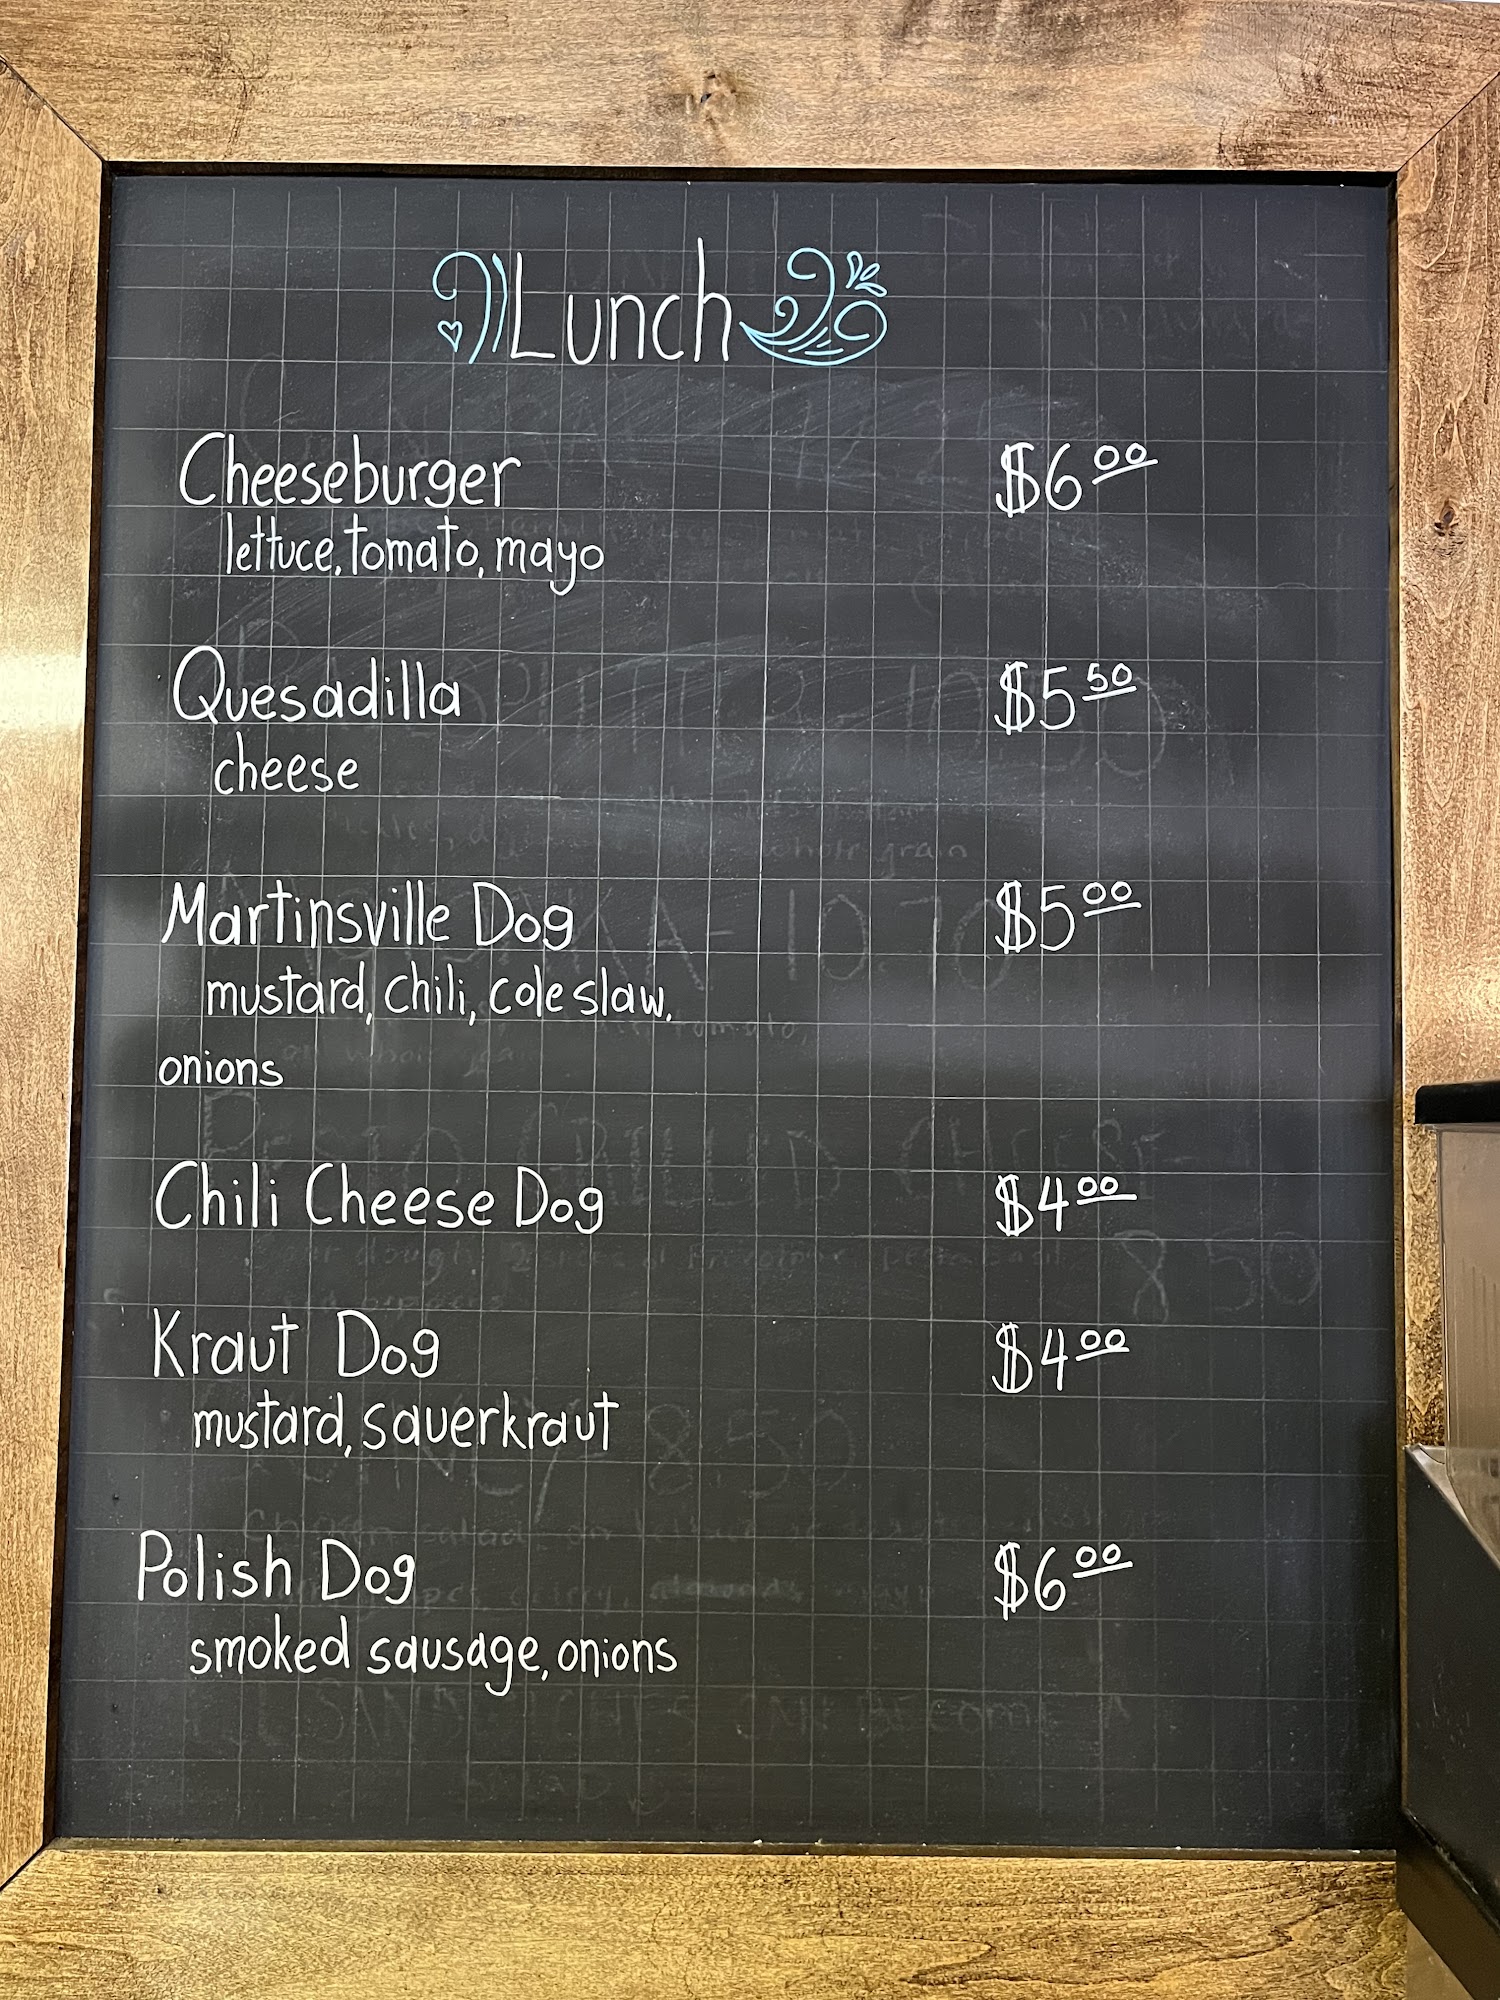 Lunch
Cheeseburger $6.00
lettuce, tomato, mayo
Quesadilla $5.50
cheese
Martinsville Dog $5.00
mustard, chili, coleslaw,
onions
Chili Cheese Dog $4.00
Kraut Dog $4.00
mustard, sauerkraut
Polish Dog $6.00
smoked sausage, onions